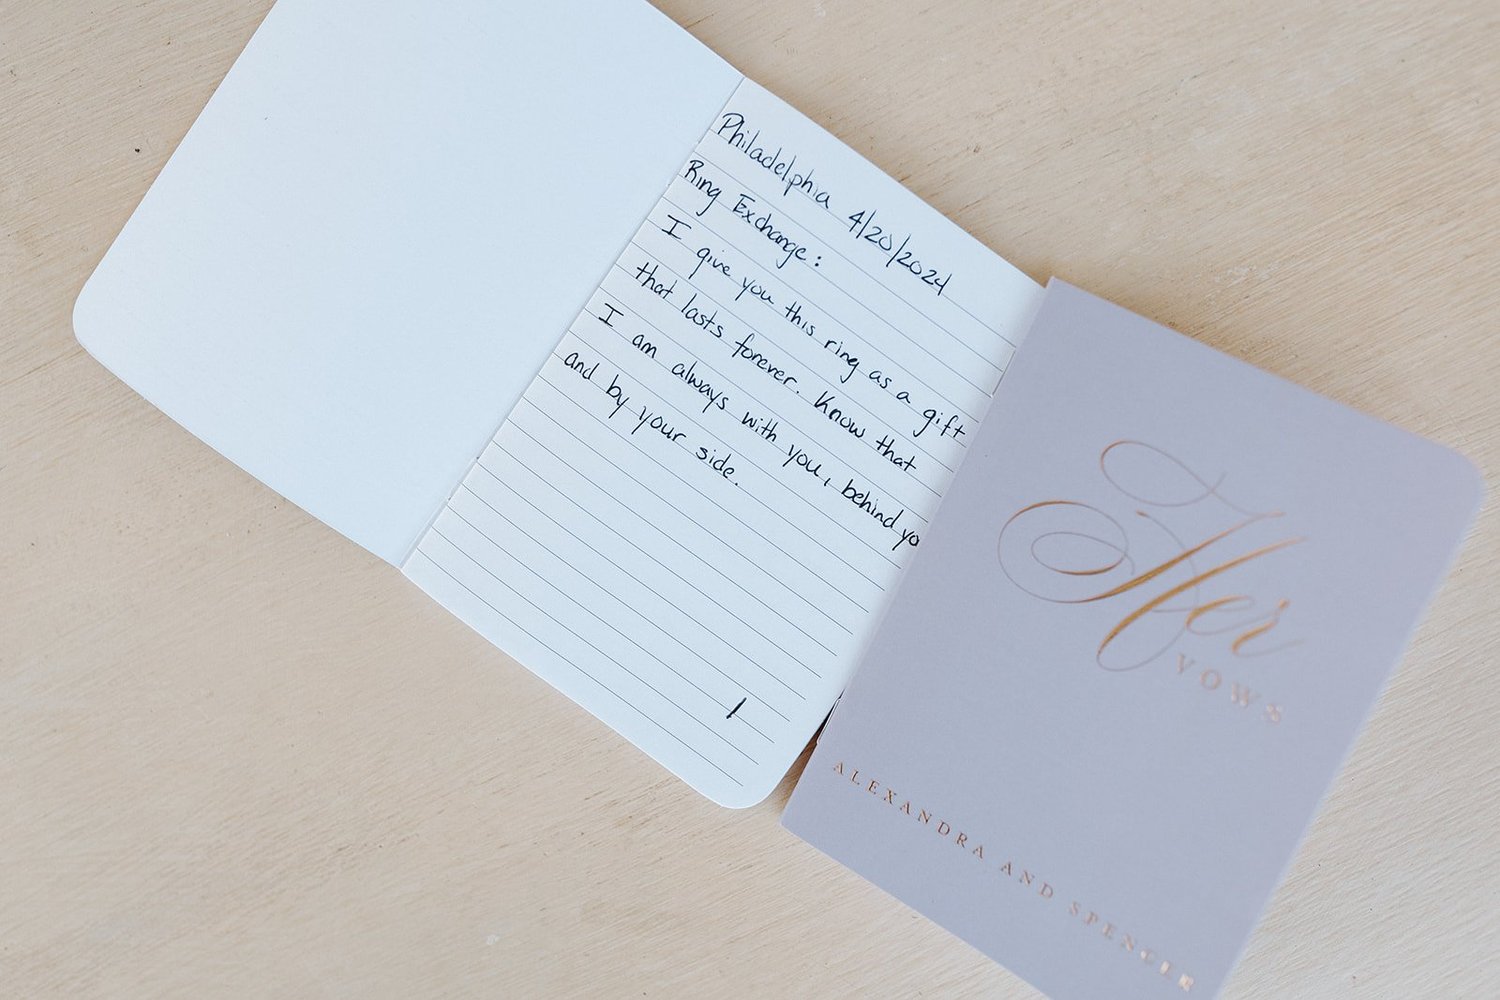 Philadelphia 4/20/2024
Ring Exchange:
I give you this ring as a gift
that lasts forever. Know that
I am always with you, behind yo
and by your side.
1
Her
VOWS
ALEXANDRA AND SPENCER